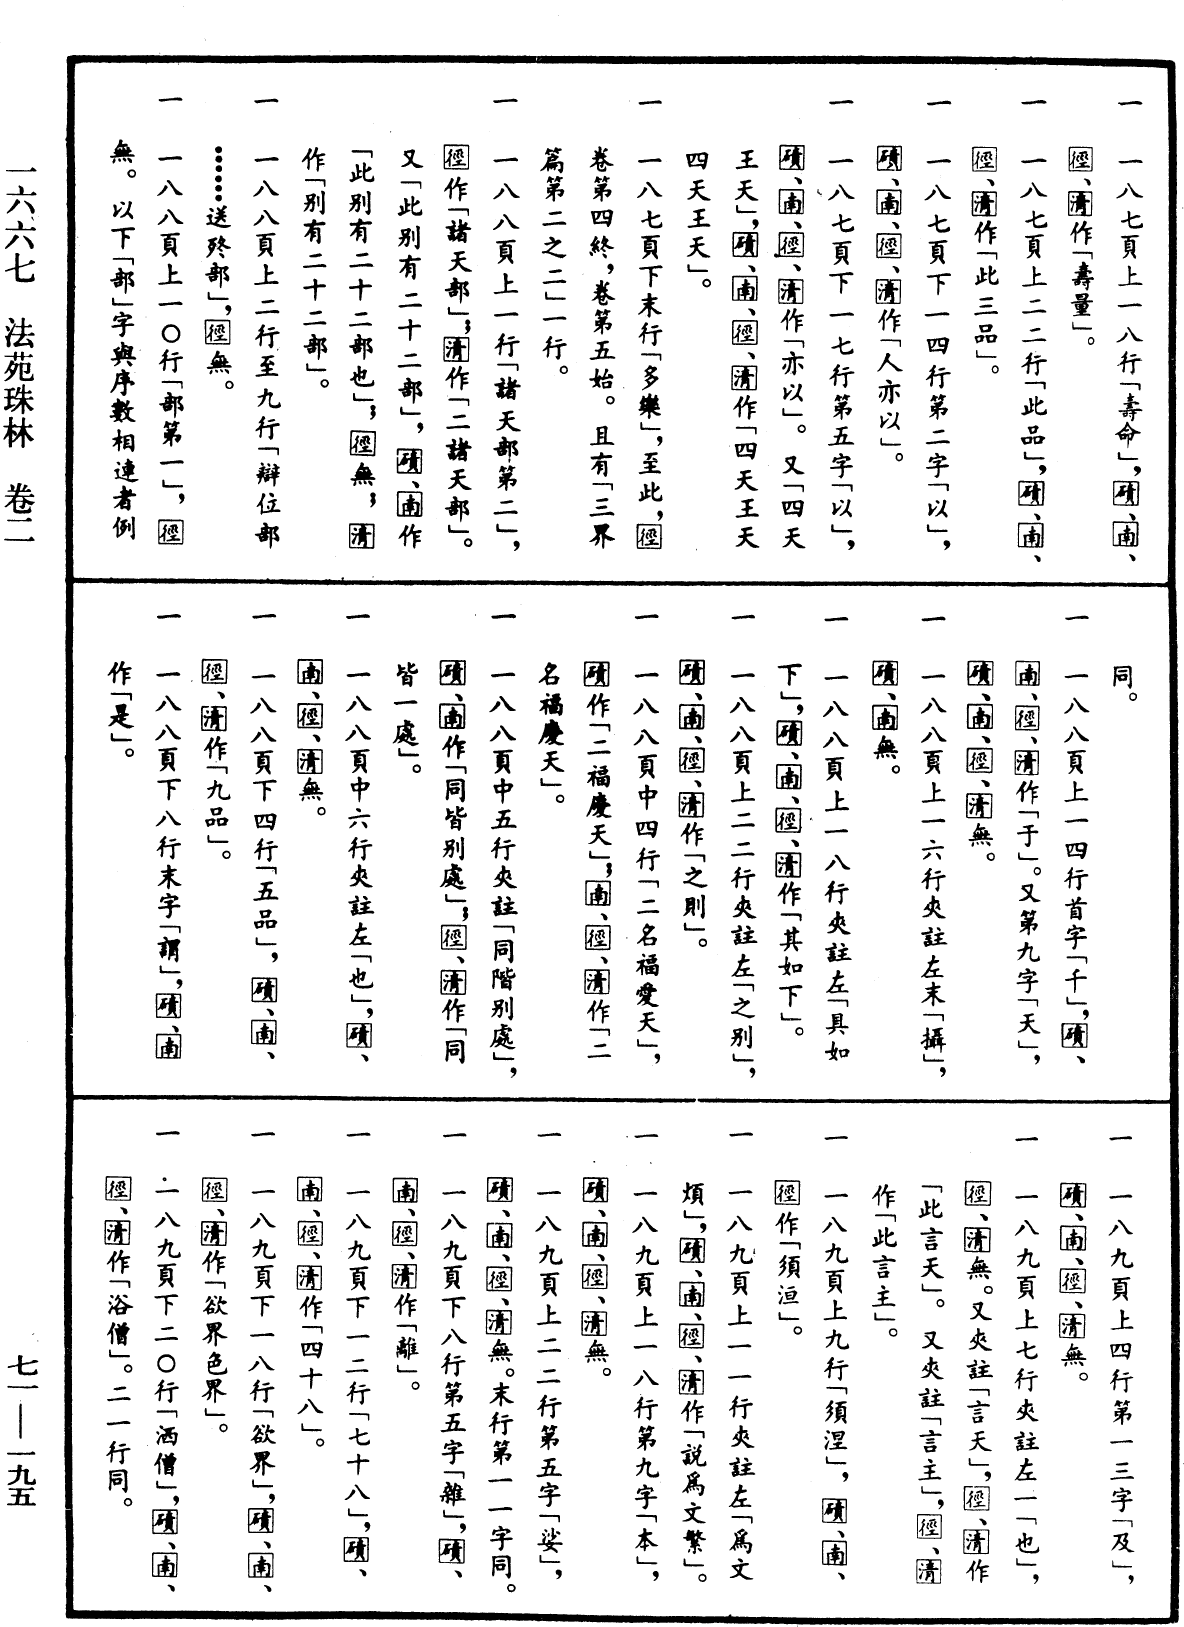 一　一八七頁上一八行「壽命」，磧、南、
徑、清作「壽量」。
一　一八七頁上二二行「此品」，磧、南、
徑、清作「此三品」。
一　一八七頁下一四行第二字「以」，
磧、南、徑、清作「人亦以」。
一　一八七頁下一七行第五字「以」，
磧、南、徑、清作「亦以」。又「四天
王天」，磧、南、徑、清作「四天王天
四天王天」。
一　一八七頁下末行「多樂」，至此，徑
卷第四終，卷第五始。且有「三界
篇第二之二」一行。
一　一八八頁上一行「諸天部第二」，
徑作「諸天部」；清作「二諸天部」。
又「此別有二十二部」，磧、南作
「此別有二十二部也」；徑無；清
作「別有二十二部」。
一　一八八頁上二行至九行「辯位部
……送終部」，徑無。
一　一八八頁上一〇行「部第一」，徑
無。以下「部」字與序數相連者例
同。
一　一八八頁上一四行首字「千」，磧、
南、徑、清作「于」。又第九字「天」，
磧、南、徑、清無。
一　一八八頁上一六行夾註左末「攝」，
磧、南無。
一　一八八頁上一八行夾註左「具如
下」，磧、南、徑、清作「其如下」。
一　一八八頁上二二行夾註左「之別」，
磧、南、徑、清作「之則」。
一　一八八頁中四行「二名福愛天」，
磧作「二福慶天」；南、徑、清作「二
名福慶天」。
一　一八八頁中五行夾註「同階別處」，
磧、南作「同皆別處」；徑、清作「同
皆一處」。
一　一八八頁中六行夾註左「也」，磧、
南、徑、清無。
一　一八八頁下四行「五品」，磧、南、
徑、清作「九品」。
一　一八八頁下八行末字「謂」，磧、南
作「是」。
一　一八九頁上四行第一三字「及」，
磧、南、徑、清無。
一　一八九頁上七行夾註左一「也」，
徑、清無。又夾註「言天」，徑、清作
「此言天」。又夾註「言主」，徑、清
作「此言主」。
一　一八九頁上九行「須涅」，磧、南、
徑作「須洹」。
一　一八九頁上一一行夾註左「爲文
煩」，磧、南、徑、清作「說爲文繁」。
一　一八九頁上一八行第九字「本」，
磧、南、徑、清無。
一　一八九頁上二二行第五字「娑」，
磧、南、徑、清無。末行第一一字同。
一　一八九頁下八行第五字「雜」，磧、
南、徑、清作「離」。
一　一八九頁下一二行「七十八」，磧、
南、徑、清作「四十八」。
一　一八九頁下一八行「欲界」，磧、南、
徑、清作「欲界色界」。
一　一八九頁下二〇行「洒僧」，磧、南、
徑、清作「浴僧」。二一行同。
一六六七　法苑珠林　卷二
七一——一九五